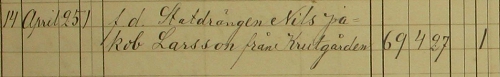 14 April 25 1 f. d. Statdrängen Nils Ja=
kob Larsson från Krutgården 69 4 27 1